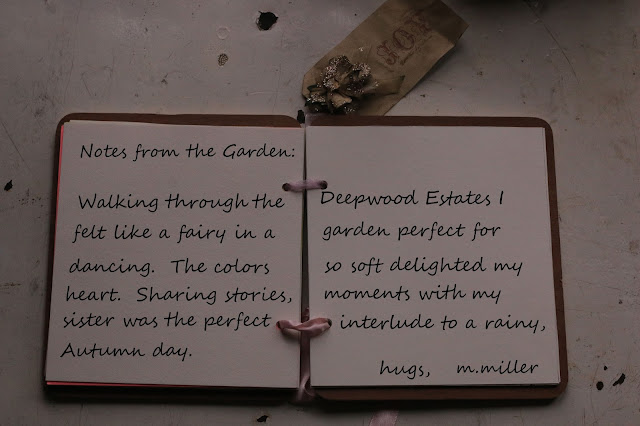 Notes from the Garden:
Walking through the Deepwood Estates I
felt like a fairy in a garden perfect for
dancing. The colors so soft delighted my
heart. Sharing stories, moments with my
sister was the perfect interlude to a rainy,
Autumn day.
hugs, m.miller